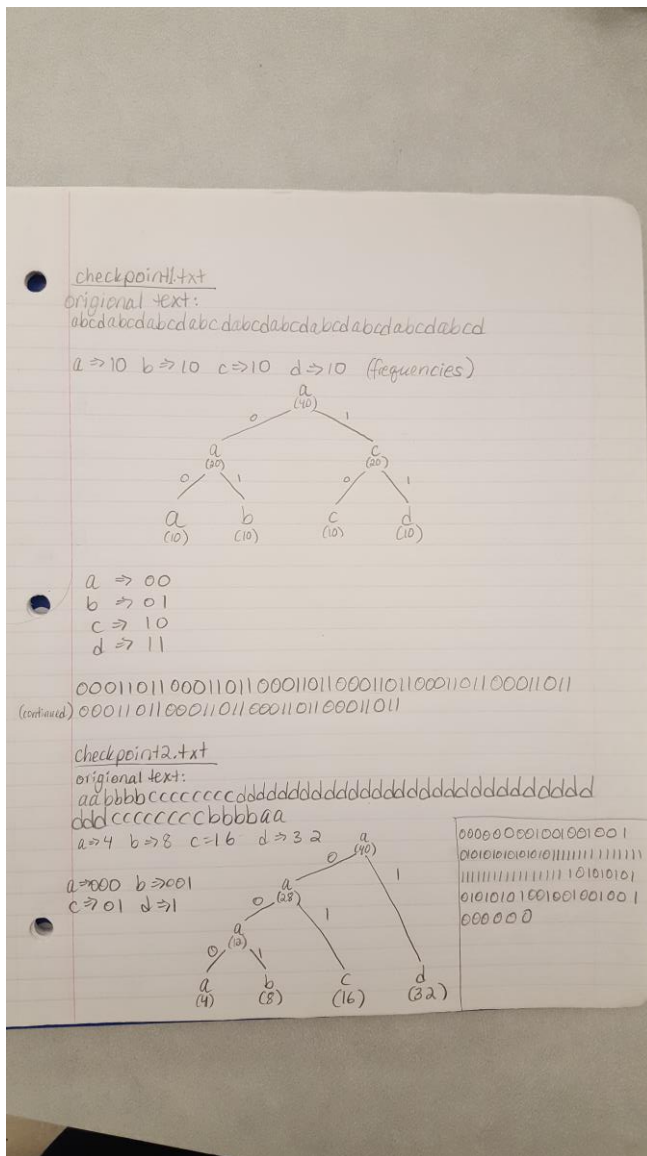 checkpoint1.txt
origional text:
abcdabcdabcdabcdabcdabcdabcdabcdabcdabcd
a⇒10 b⇒10 c⇒10 d⇒10 (fequencies)
a
(40)
0 1
a c
(20) (20)
0 1 0 1
a b c d
(10) (10) (10) (10)
a ⇒ 00
b ⇒ 01
c ⇒ 10
d ⇒ 11
000110110001101100011011000110110001101100011011
(continued) 00011011000110110001101100011011
checkpoint2.txt
origional text:
aabbbbccccccccddddddddddddddddddddddddddddd
dddccccccccbbbbaa
a⇒4 b⇒8 c=16 d⇒32
a⇒000 b⇒001
c⇒01 d⇒1
a
(40)
0 1
a
(28)
0 1
a
(12)
0 1
a b c d
(4) (8) (16) (32)
000000001001001001
0101010101010101111111111111111
1111111111111111101010101
01010101001001001001
000000